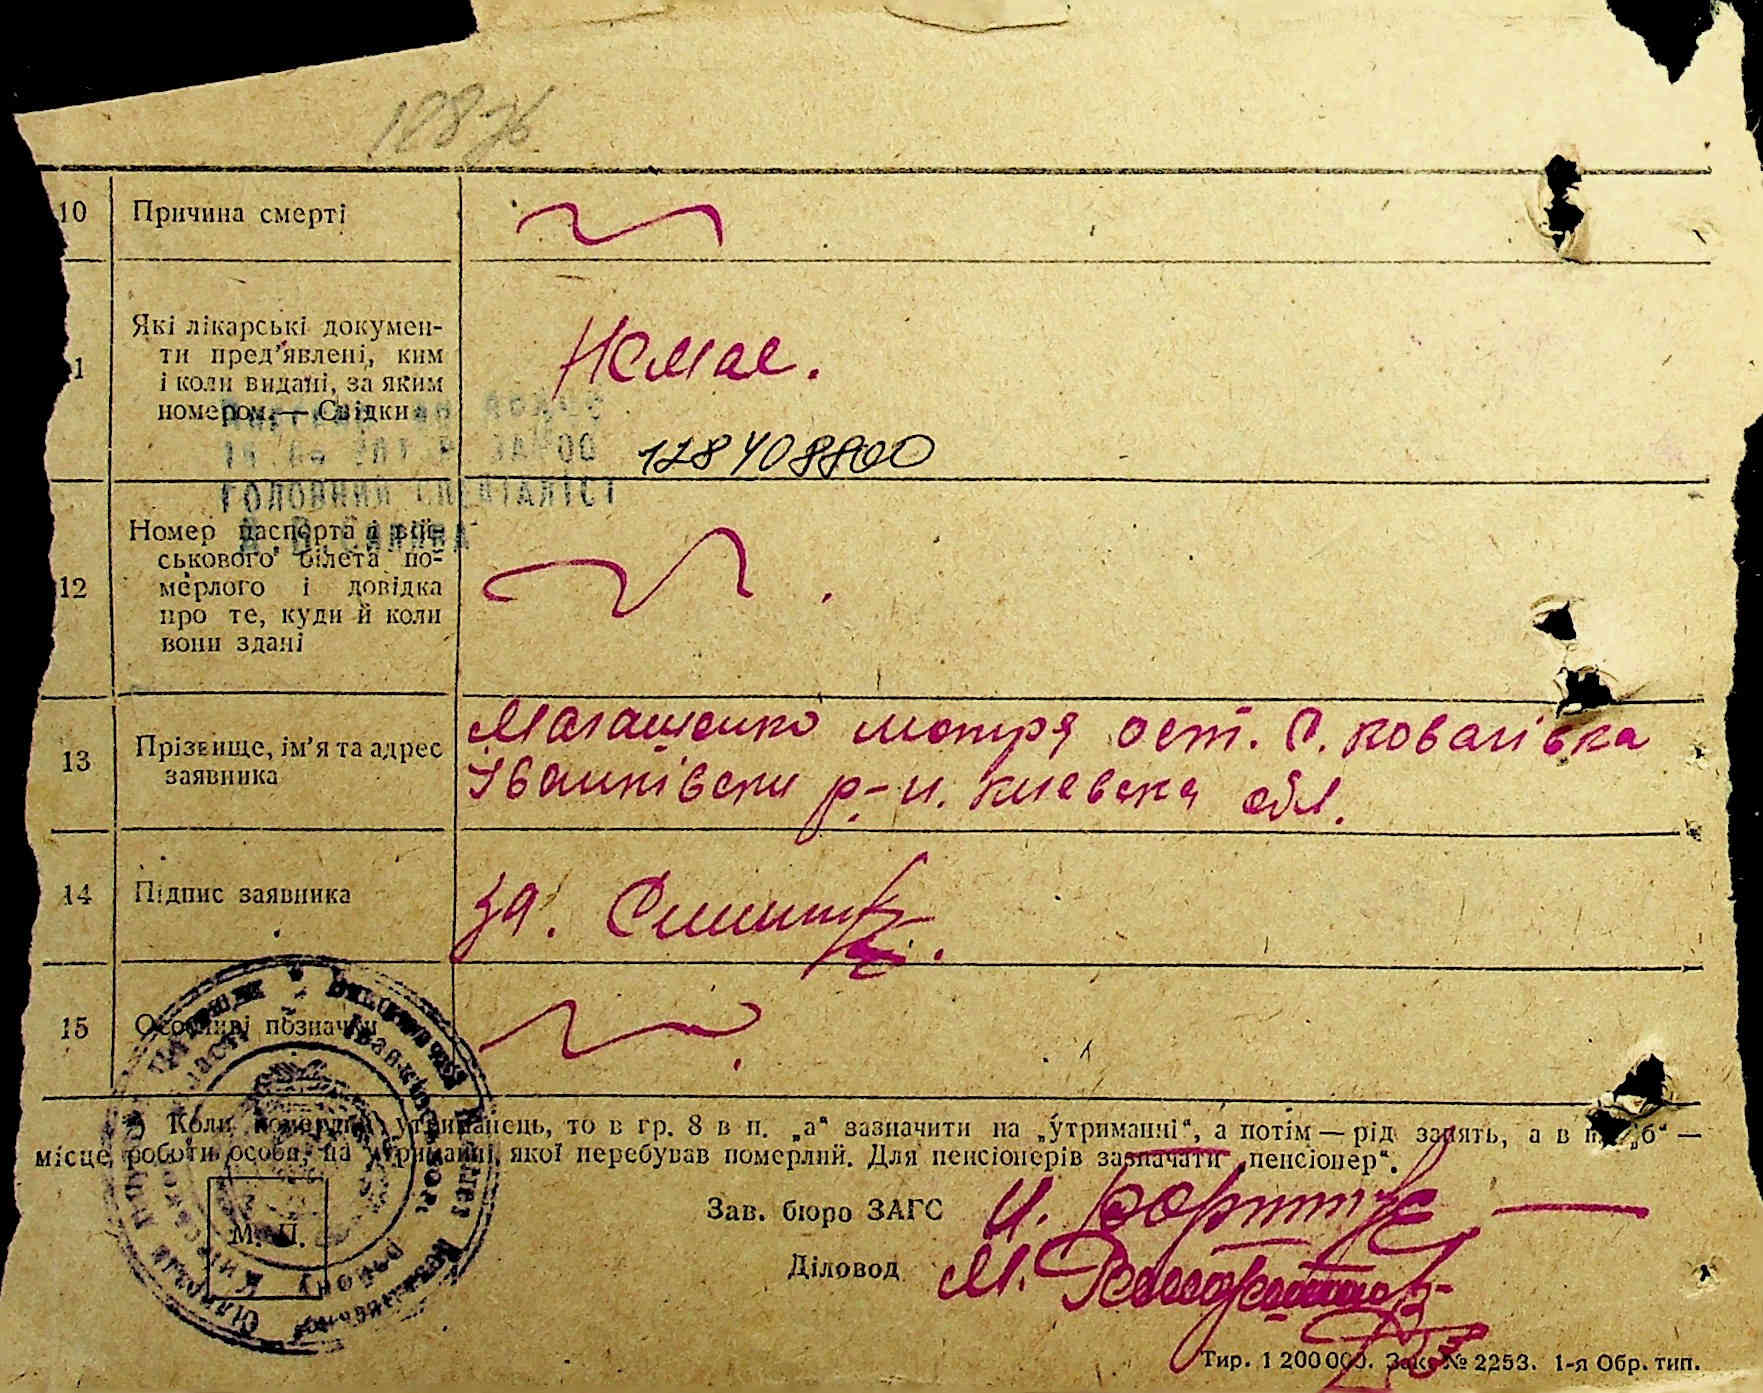 10 Причина смерті
Які лікарські докумен-
ти пред’явлені, ким
і коли видані, за яким
номером.— Свідки
Немає.
128408800
ГОЛОВНИЙ СПЕЦІАЛІСТ
12 Номер паспорта й вій-
ськового білета по-
мерлого і довідка
про те, куди й коли
вони здані
13 Прізвище, ім’я та адрес
заявника
мотря ост. с. Ковалівка
Іванківськи р-н. Киевска обл.
14 Підпис заявника
за.
15 Особливі позначки
*) Коли померлий утриманець, то в гр. 8 в п. „а“ зазначити на „утриманні“, а потім — рід занять, а в п. „б“ —
місце роботи особи, на утриманні якої перебував померлий. Для пенсіонерів зазначати „пенсіонер“.
М. П.
Зав. бюро ЗАГС И.
Діловод М.
Тир. 1 200 000. Зак. № 2253. 1-я Обр. тип.